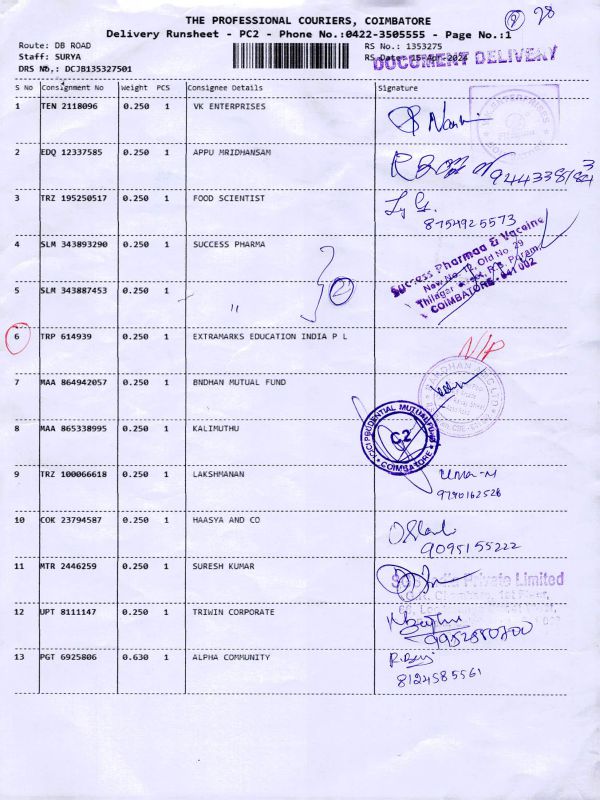 THE PROFESSIONAL COURIERS, COIMBATORE
28
Delivery Runsheet - PC2 - Phone No.:0422-3505555 - Page No.:1
Route: DB ROAD
RS No.: 1353275
Staff: SURYA
RS Date: 15-Apr-2026
DOCUMENT DELIVERY
DRS No.: DCJB135327501
S No Consignment No Weight PCS Consignee Details Signature
1 TEN 2118096 0.250 1 VK ENTERPRISES
2 EDQ 12337585 0.250 1 APPU MRIDHANSAM
3 TRZ 195250517 0.250 1 FOOD SCIENTIST
8754925573
4 SLM 343893290 0.250 1 SUCCESS PHARMA
Success Pharmaa & Vaccine
New No. 12, Old No. 29
COIMBATORE - 641 002
5 SLM 343887453 0.250 1 "
2
6 TRP 614939 0.250 1 EXTRAMARKS EDUCATION INDIA P L
N/P
7 MAA 864942057 0.250 1 BNDHAN MUTUAL FUND
8 MAA 865338995 0.250 1 KALIMUTHU
ICICI PRUDENTIAL MUTUAL FUND
C2
COIMBATORE
9 TRZ 100066618 0.250 1 LAKSHMANAN
Uma-M
9790162528
10 COK 23794587 0.250 1 HAASYA AND CO
9095155222
11 MTR 2446259 0.250 1 SURESH KUMAR
Private Limited
12 UPT 8111147 0.250 1 TRIWIN CORPORATE
13 PGT 6925806 0.630 1 ALPHA COMMUNITY
8124585561